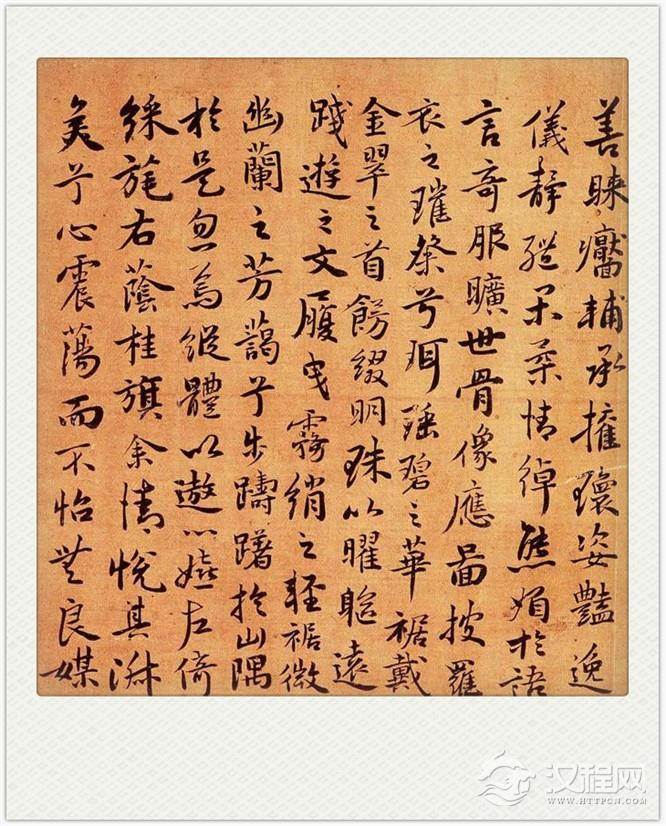 善睞靨輔承權瓌姿豔逸
儀靜體閑柔情綽態媚於語
言奇服曠世骨像應圖披羅
衣之璀粲兮珥瑤碧之華裾戴
金翠之首餝綴明珠以曜軀遠
踐遊之文履曳霧綃之輕裾微
幽蘭之芳藹兮步躊躇於山隅
於是忽焉縱體以遨以嬉左倚
綵旄右蔭桂旗余情悅其淑
美兮心震蕩而不怡無良媒
汉程网
WWW.HTTPCN.COM